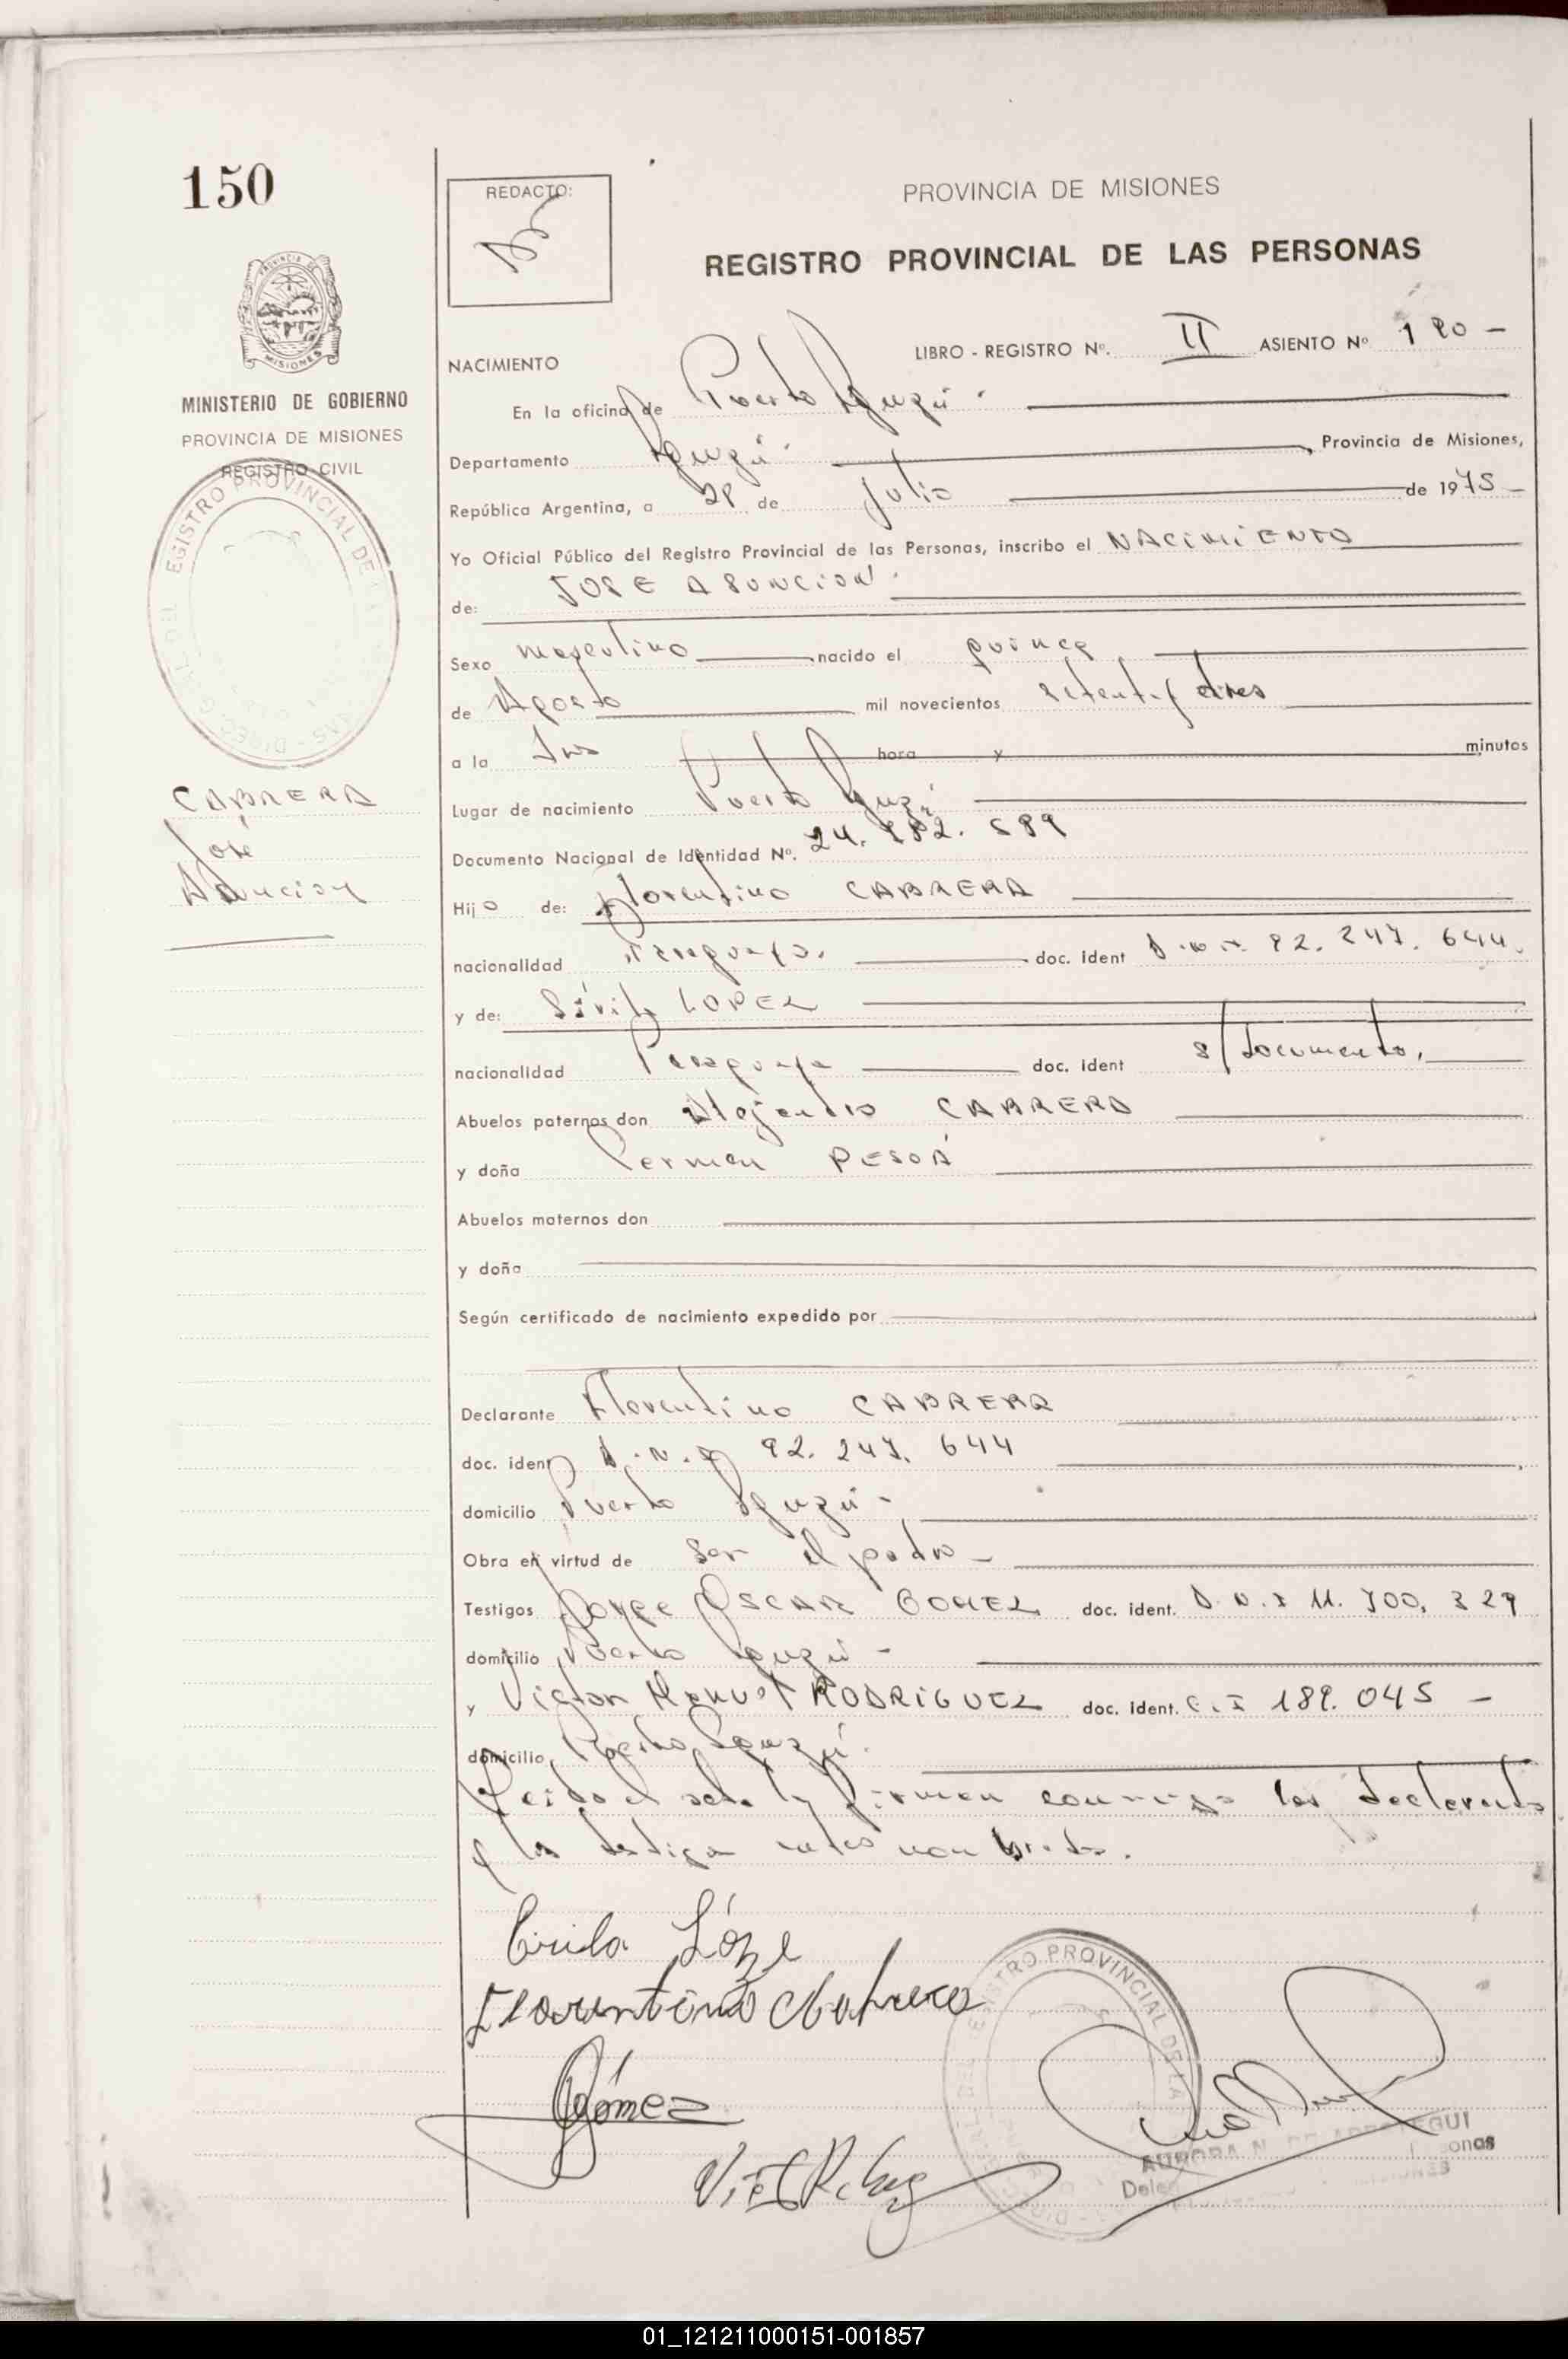 150
REDACTO:
PROVINCIA DE MISIONES
REGISTRO PROVINCIAL DE LAS PERSONAS
MINISTERIO DE GOBIERNO
PROVINCIA DE MISIONES
REGISTRO CIVIL
CABRERA
José
Asuncion
NACIMIENTO
LIBRO - REGISTRO Nº. II ASIENTO Nº
En la oficina de Puerto Iguazú.
Departamento Iguazú. Provincia de Misiones,
República Argentina, a 28 de Julio de 1975
Yo Oficial Público del Registro Provincial de las Personas, inscribo el NACIMIENTO
de: JOSE ASUNCION.
Sexo masculino nacido el quince
de Agosto mil novecientos setenta y
a la hora y minutos
Lugar de nacimiento Puerto Iguazú
Documento Nacional de Identidad Nº. 24.
Hijo de: Florentino CABRERA
nacionalidad Paraguayo. doc. ident D.N.I. 92. 247. 644.
y de: LOPEZ
nacionalidad Paraguaya doc. ident s/documento,
Abuelos paternos don Alejandro CABRERA
y doña Carmen PESOA
Abuelos maternos don
y doña
Según certificado de nacimiento expedido por
Declarante Florentino CABRERA
doc. ident D.N.I 92. 247. 644
domicilio Puerto Iguazú -
Obra en virtud de ser el padre -
Testigos Jorge OSCAR GOMEZ doc. ident. D.N.I 11. 700. 329
domicilio Puerto Iguazú -
y Victor Manuel RODRIGUEZ doc. ident. C.I 189. 045 -
domicilio Puerto Iguazú.
Leido el acta y firman conmigo los declarantes
y los testigos antes nombrados.
Cirila Lópe
Florentino Cabrera
Gómez
AURORA N. DE
01_121211000151-001857